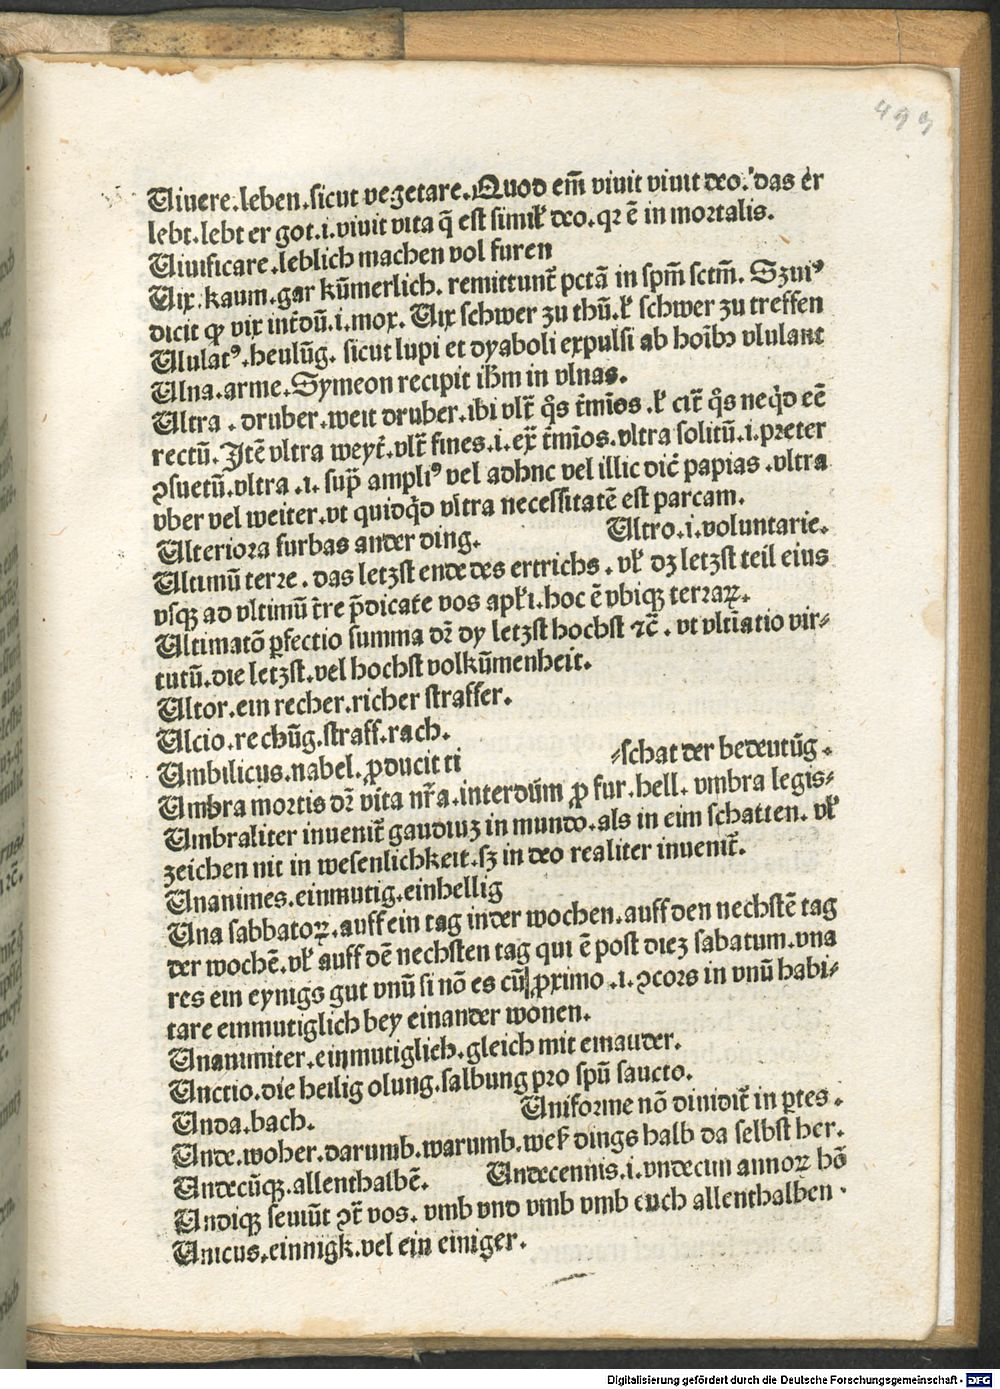 499
Uiuere.leben.sicut vegetare.Quod em̄ viuit viuit deo.das er
lebt.lebt er got.i.viuit vita q̄ est simił deo.qr ē in mortalis.
Uiuificare.leblich machen vol furen
Uix.kaum.gar kūmerlich. remittunt̄ pctā in spm̄ sctm̄. Szui⁹
dicit ꝙ vix int̄dū.i.mox. Uix schwer zu thū.ł schwer zu treffen
Ululat⁹.heulūg. sicut lupi et dyaboli expulsi ab hoīb₉ vlulant
Ulna.arme.Symeon recipit ihm̄ in vlnas.
Ultra . druber.weit druber.ibi vlt̄ q̄s t̄mīos.ł cit̄ q̄s neq̇d eē
rectū.Itē vltra weyt̄.vlt̄ fines.i.ex̄ t̄mīos.vltra solitū.i.preter
ꝯsuetū.vltra .i. sup̄ ampli⁹ vel adhnc vel illic dic̄ papias .vltra
vber vel weiter.vt quidq̇d vltra necessitatē est parcam.
Ulteriora furbas ander ding. Ultro.i.voluntarie.
Ultimū terre.das letzst ende des ertrichs.vł dz letzst teil eius
vsqꝫ ad vltimū t̄re p̄dicate vos apłi.hoc ē vbiqꝫ terraꝝ.
Ultimatō ꝑfectio summa dr̄ dy letzst hochst ⁊c̄ . vt vltīatio vir-
tutū.die letzst.vel hochst volkūmenheit.
Ultor.ein recher.richer straffer.
Ulcio.rechūg.straff.rach.
Umbilicus.nabel.ꝓducit ti -schat der bedeutūg.
Umbra mortis dr̄ vita nr̄a.interdūm ꝓ fur.hell. vmbra legis-
Umbraliter inuenit̄ gaudiuꝫ in mundo.als in eim schatten. vł
zeichen nit in wesenlichkeit.sꝫ in deo realiter inuenit̄.
Unanimes.einmutig.einhellig
Una sabbatoꝝ.auff ein tag in der wochen.auff den nechstē tag
der wochē.vł auff dē nechsten tag qui ē post dieꝫ sabatum.vna
res ein eynigs gut vnū si nō es cū ꝓximo .i.ꝯcors in vnū habi-
tare einmutiglich bey einander wonen.
Unanimiter.einmutiglich.gleich mit einander.
Unctio.die heilig olung.salbung pro spū sancto.
Unda.bach. Uniforme nō diuidit̄ in ꝑtes.
Unde.woher.darumb.warumb.weł dings halb da selbst her.
Undecūqꝫ.allenthalbē. Undecennis.i.vndecim annoꝝ hō
Undiqꝫ seuiūt ꝯt̄ vos. vmb vnd vmb vmb euch allenthalben.
Unicus.einnigk.vel ein einiger.
Digitalisierung gefördert durch die Deutsche Forschungsgemeinschaft - DFG